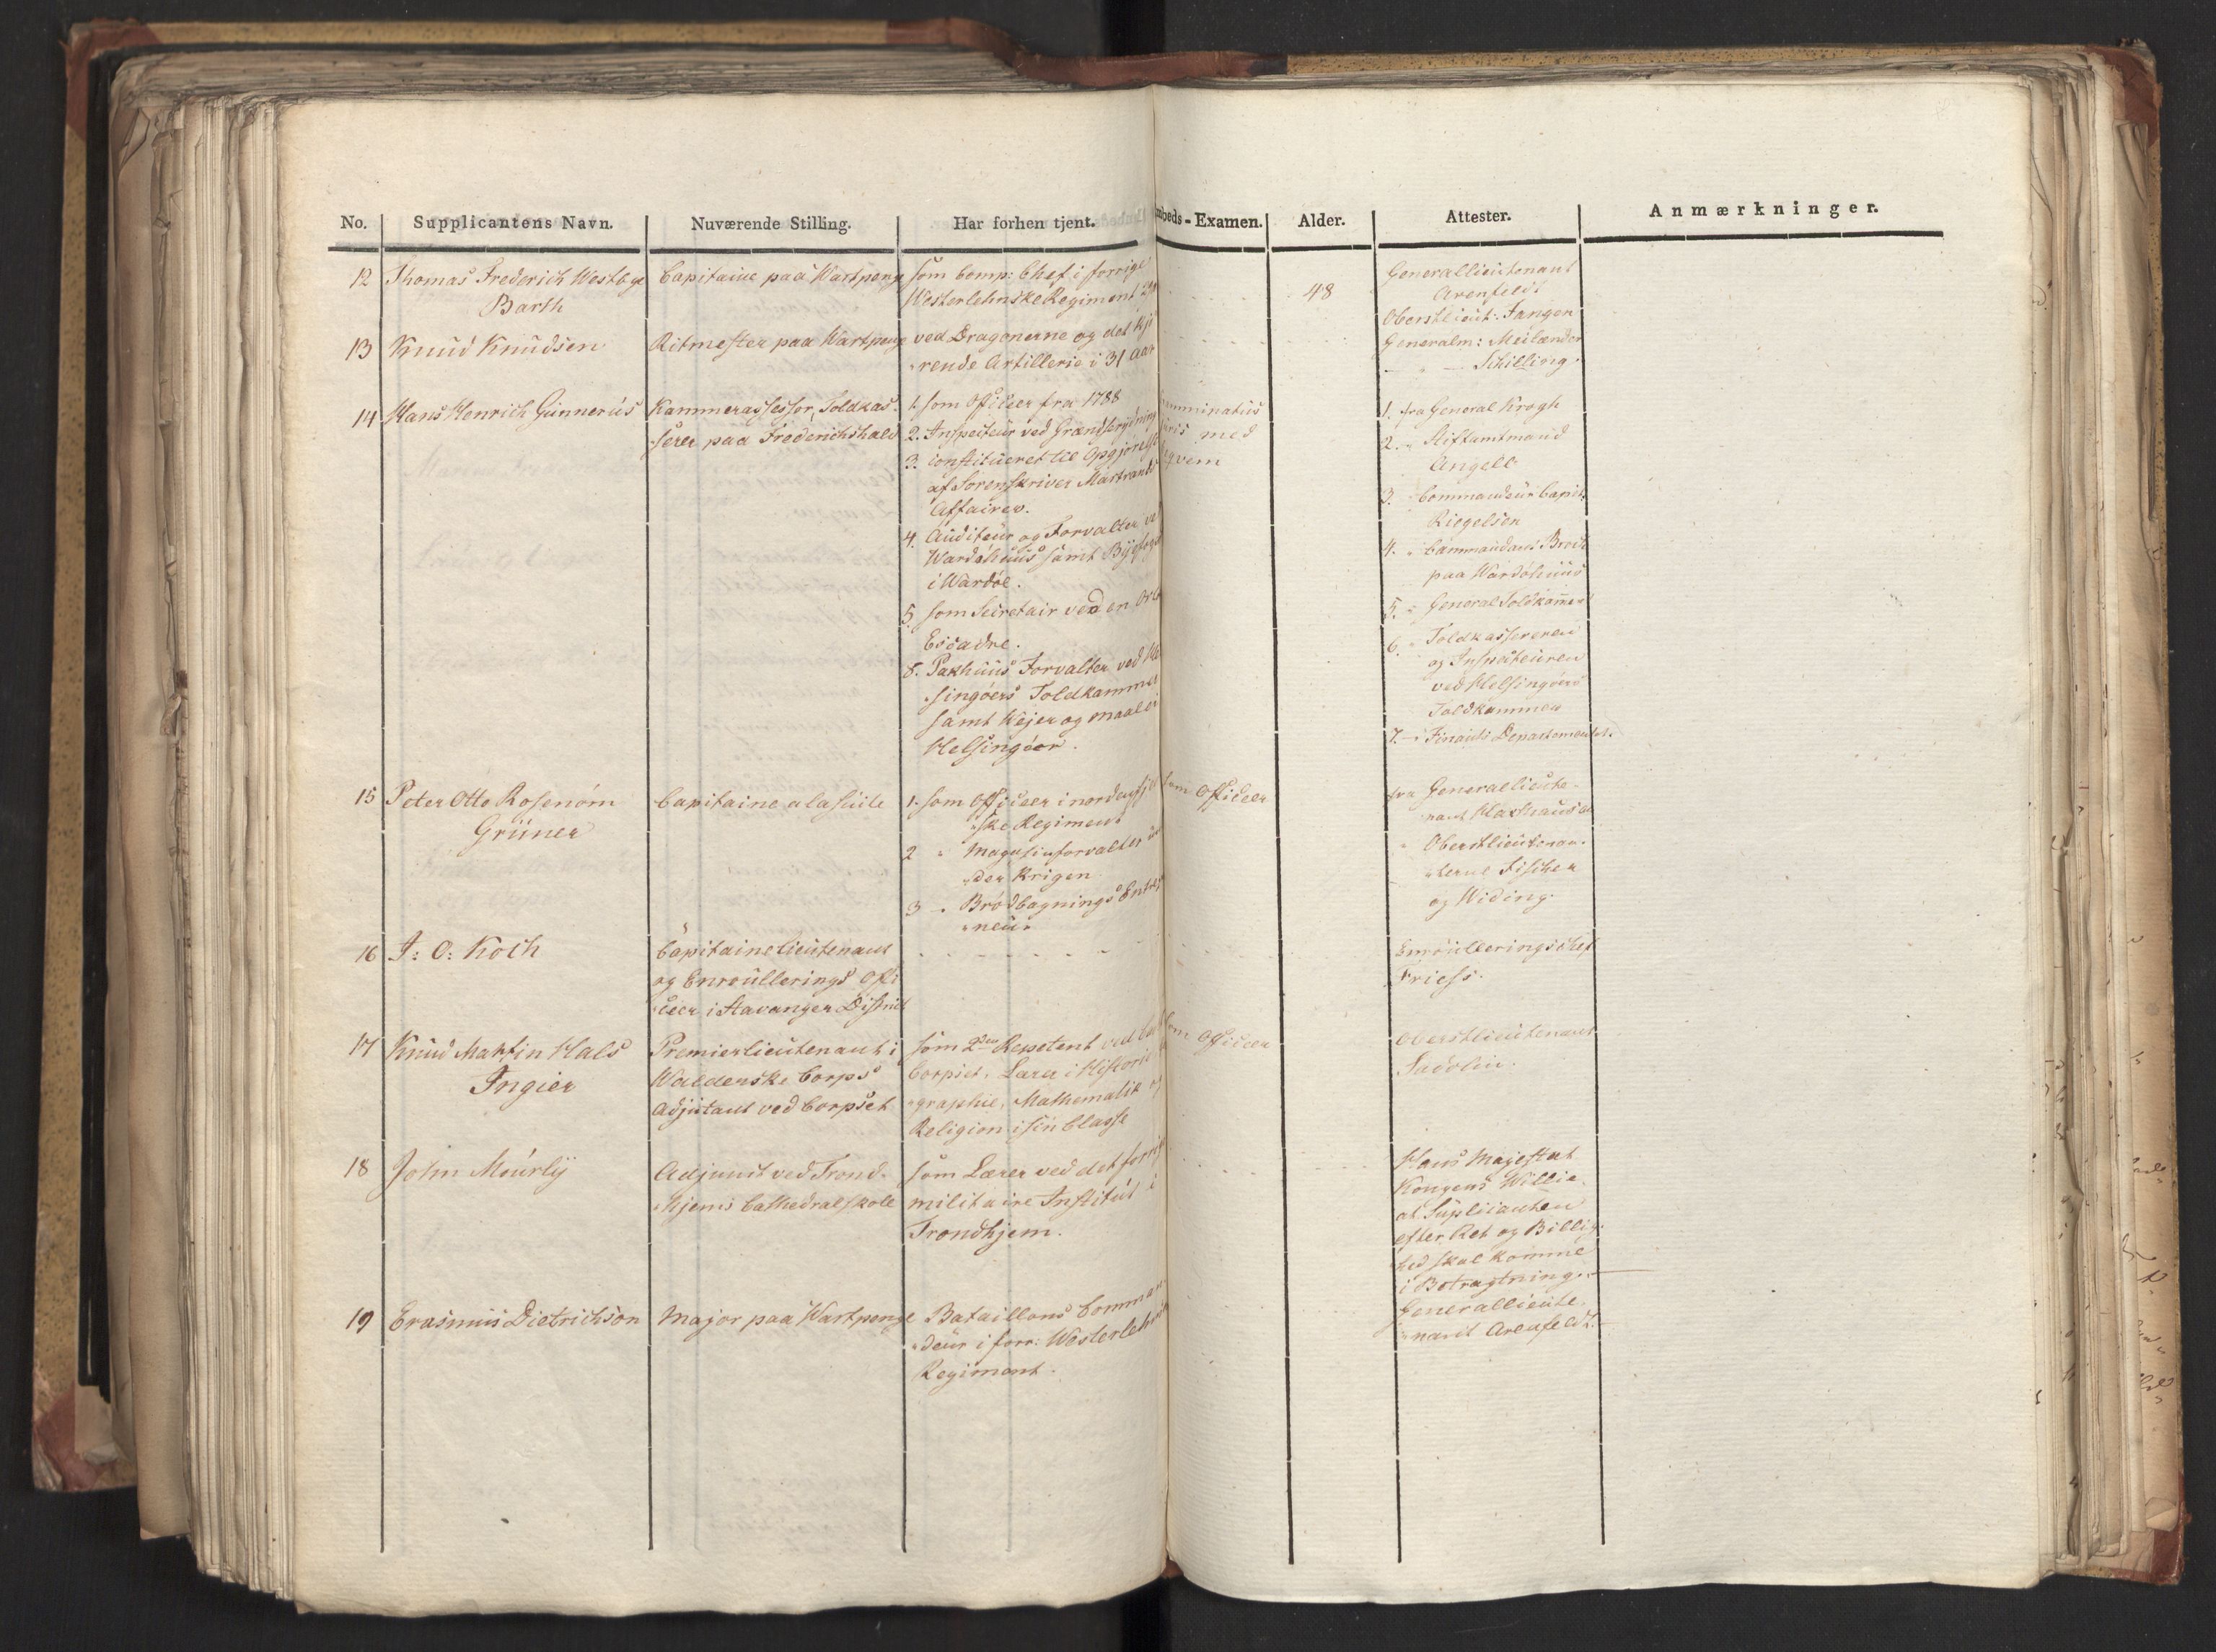 No. Supplicantens Navn. Nuværende Stilling. Har forhen tjent. Embeds-Examen. Alder. Attester. Anmærkninger.
12 Thomas Frederich Westbye
Barth
Capitaine paa Wartpenge
som Comp: Chef i forrige
Westerlehnske Regiment
48
Generallieutenant
Arenfeldt
Oberstlieut: Fangen
13 Knud Knudsen
Ritmester paa Wartpenge
ved Dragonerne og det kjø
rende Artillerie i 31 Aar
Generalm: Meilænder
— " — Schilling.
14 Hans Henrich Gunnerus
Kammerassessor, Toldkas
serer paa Frederichshald
1. som Officeer fra 1788
2. Inspecteur ved Grændserydning
3. constitueret til Opgjørelse
af Sorenskriver Mastrands
Affairer.
4. Auditeur og Forvalter ved
Wardøhuus samt Byefoged
i Wardøe.
5. som Secretair ved en Orlo
Escadre.
8. Pakhuus Forvalter ved Hel
singøers Toldkammer
samt Vejer og maaler i
Helsingöer.
examinatus
juris med
eqvem
1. fra General Krogh
2. " Stiftamtmand
Angell
3. " Commandeur Capit:
Riegelsen
4. " Commandant Broch
paa Wardøhuus
5. " General Toldkamret
6. " Toldkassereren
og Inspecteuren
ved Helsingøers
Toldkammer
7. — " Finants Departementet.
15 Peter Otto Rosenørn
Grüner
Capitaine a la suite
1. som Officeer i nordenfjel
ske Regiment
2 " Magasinforvalter un
der Krigen
3 — " Brødbagnings Entre
neur
som Officeer
fra Generallieute-
nant Haxthausen
" Oberstlieutenan-
terne Fischer
og Widing.
16 J: C: Koch
Capitainelieutenant
og Enroullerings Offi
ceer i Stavanger District
Enroulleringschef
Friess.
17 Knud Martin Hals
Ingier
Premierlieutenant i
Waldenske Corps
Adjutant ved Corpset
som 2den Repetent ved Cad
Corpset, Lærer i Historie
graphie, Mathematik og
Religion i sin Classe
som Officeer
Oberstlieutenant
Sadolin.
18 John Mourly
Adjunct ved Trond-
hjems Cathedralskole
som Lærer ved det forrige
militaire Institut i
Trondhjem.
Hans Majestæt
Kongens Willie,
at Supplicanten
efter Ret og Billig-
hed skal komme
i Betragtning.—
19 Erasmus Dietrichson
Major paa Wartpenge
Bataillons Comman
deur i forr: Westerlehnske
Regiment.
Generallieute-
nant Arenfeldt.